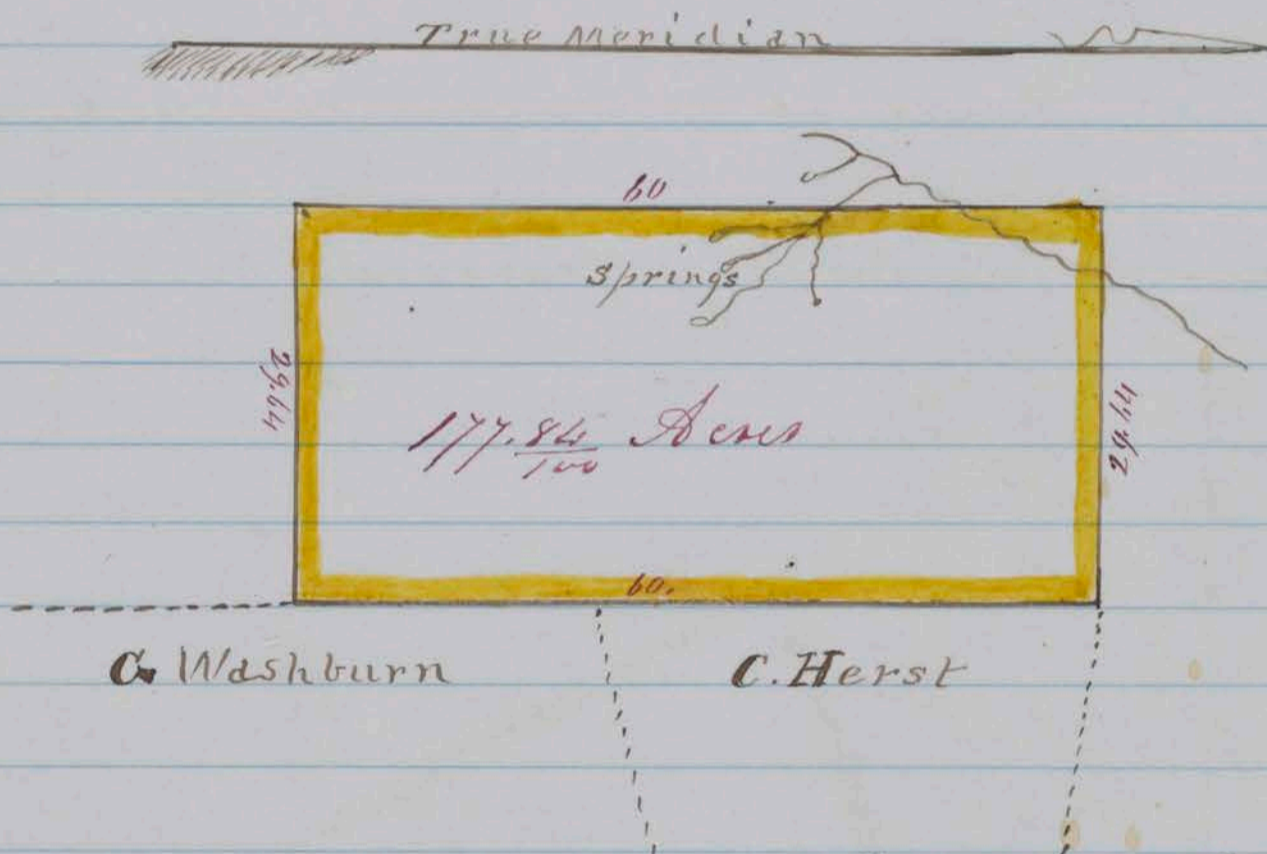 True Meridian
60
Springs
29.64
29.64
177.84/100 Acres
60.
C. Washburn
C. Herst